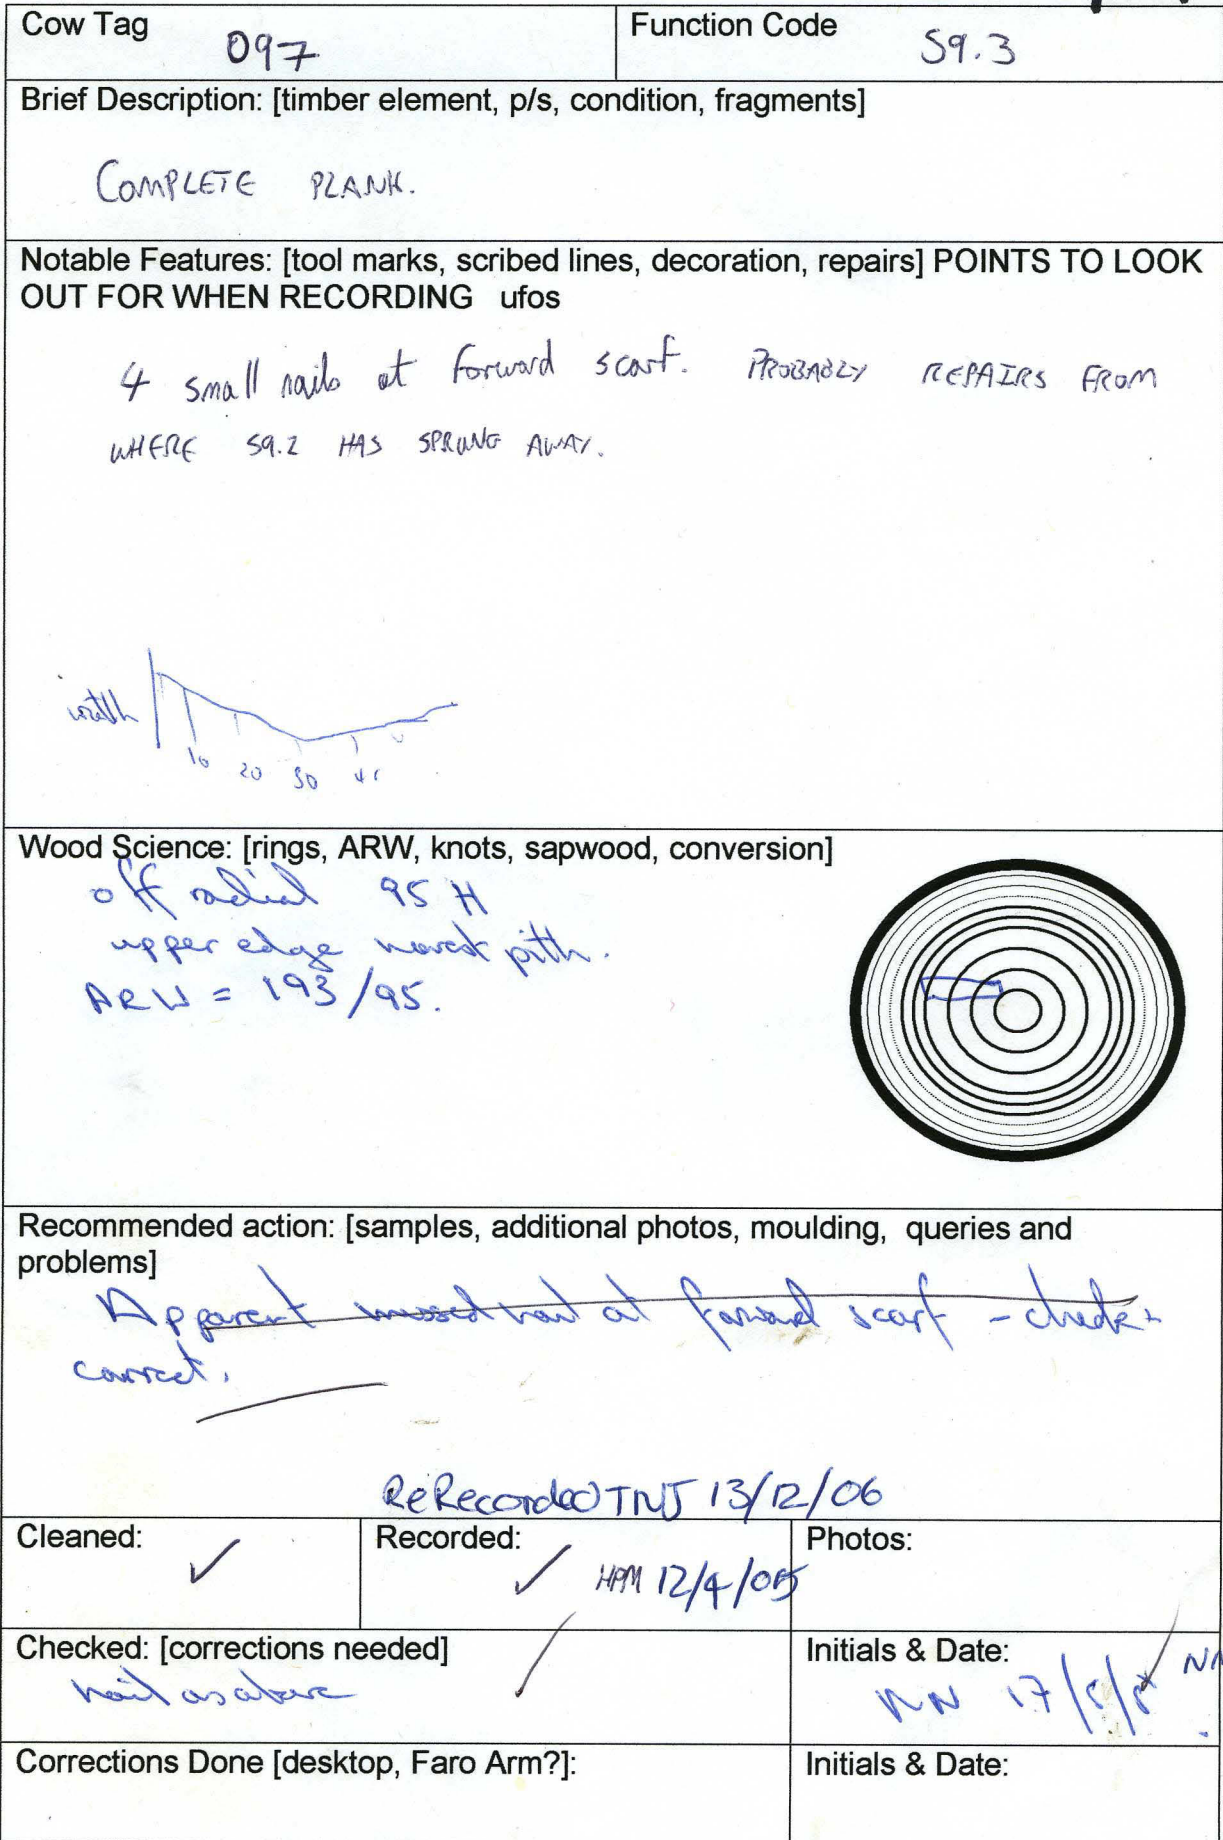 Cow Tag 097 Function Code S9.3
Brief Description: [timber element, p/s, condition, fragments]
COMPLETE PLANK.
Notable Features: [tool marks, scribed lines, decoration, repairs] POINTS TO LOOK
OUT FOR WHEN RECORDING ufos
4 small nails at forward scarf. PROBABLY REPAIRS FROM
WHERE S9.2 HAS SPRUNG AWAY.
width
10 20 30
Wood Science: [rings, ARW, knots, sapwood, conversion]
off radial 95 H
upper edge nearest pith.
ARW = 193/95.
Recommended action: [samples, additional photos, moulding, queries and
problems]
Apparent missed nail at forward scarf - check +
correct.
ReRecorded TNJ 13/12/06
Cleaned: ✓ Recorded: ✓ HPM 12/4/05 Photos:
Checked: [corrections needed] Initials & Date:
nail as above NN 17/5/
Corrections Done [desktop, Faro Arm?]: Initials & Date: